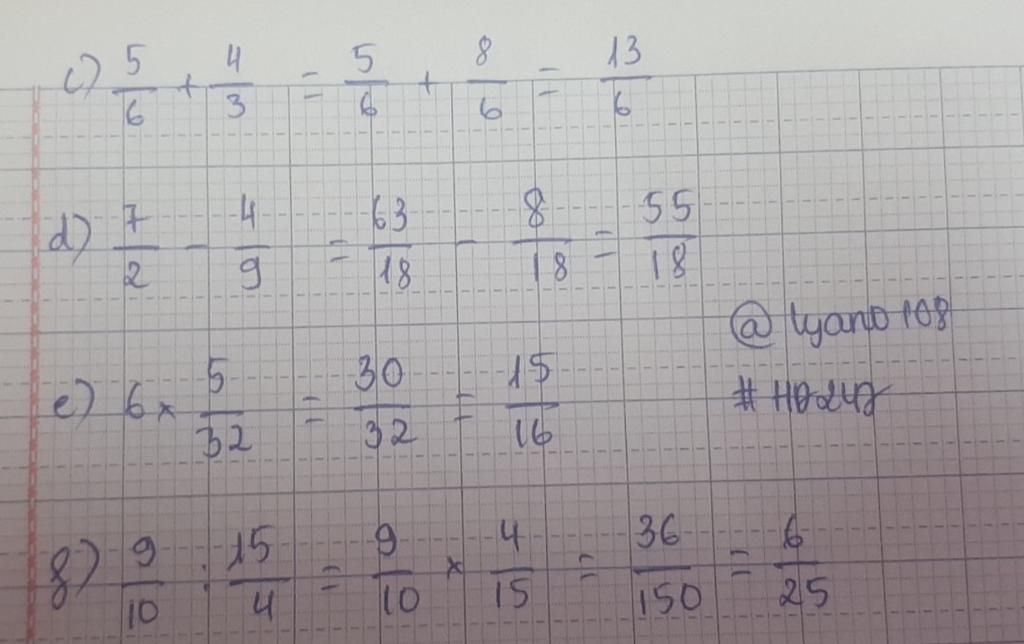 c) 5/6 + 4/3 = 5/6 + 8/6 = 13/6
d) 7/2 - 4/9 = 63/18 - 8/18 = 55/18
@ lyano108
e) 6 × 5/32 = 30/32 = 15/16
g) 9/10 : 15/4 = 9/10 × 4/15 = 36/150 = 6/25